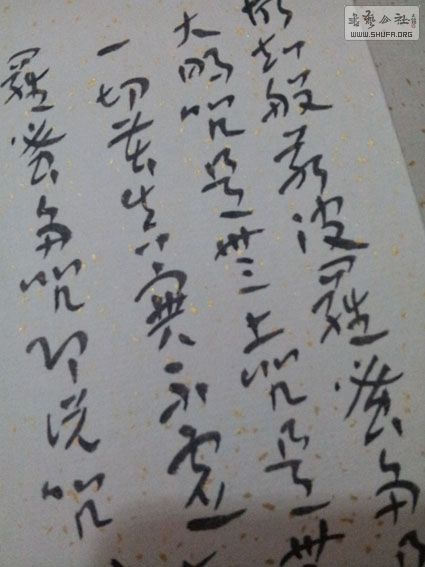 書藝公社
WWW.SHUFA.ORG
故知般若波羅蜜多是
大明咒是無上咒是無
一切苦真實不虛
羅蜜多咒即說咒